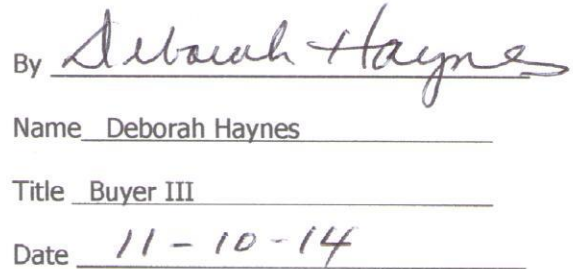 By Deborah Haynes
Name Deborah Haynes
Title Buyer III
Date 11-10-14